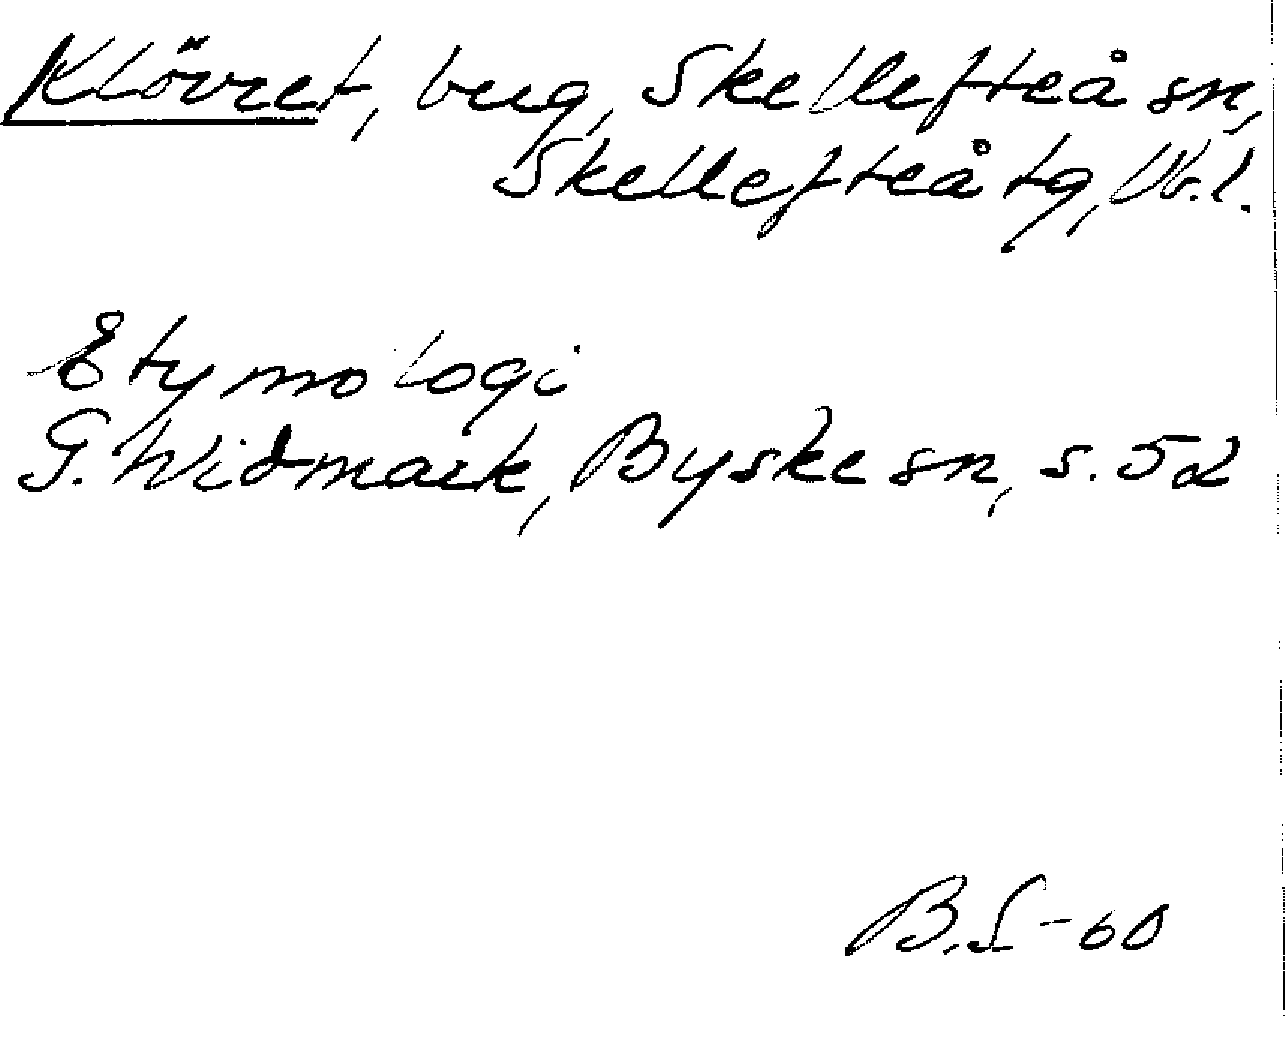 Klövret, berg, Skellefteå sn,
Skellefteå tg, Vb.l.
Etymologi
G. Widmark, Byske sn, s. 52
B.S-60